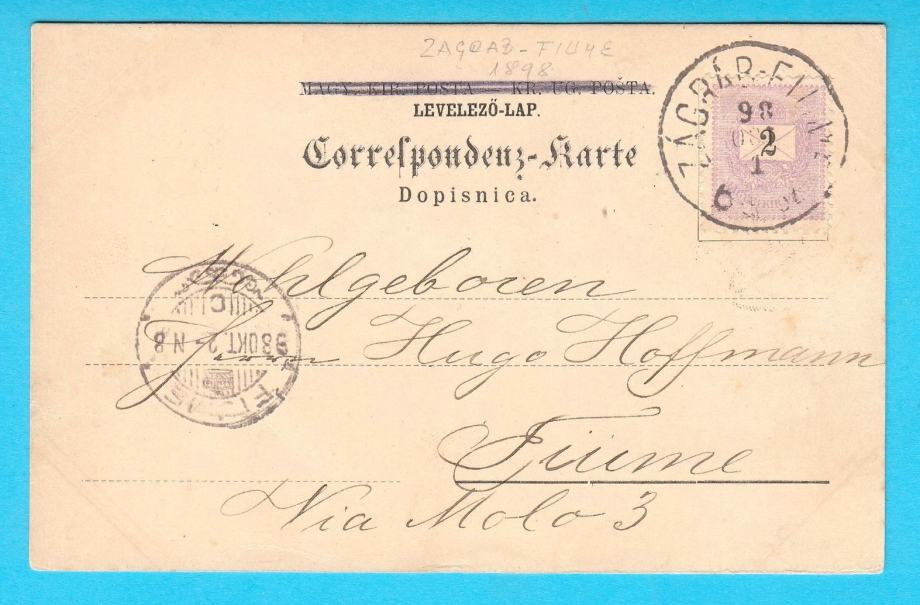 ZAGRAB-FIUME
1898
MAGY. KIR. POSTA — KR. UG. POŠTA.
LEVELEZŐ-LAP.
Correspondenz-Karte
Dopisnica.
ZÁGRÁB-FIUME
98
2
1
6
Wohlgeboren
Herrn Hugo Hoffmann
Fiume
Via Molo 3
FIUME
98 OKT. 2 N 8
C